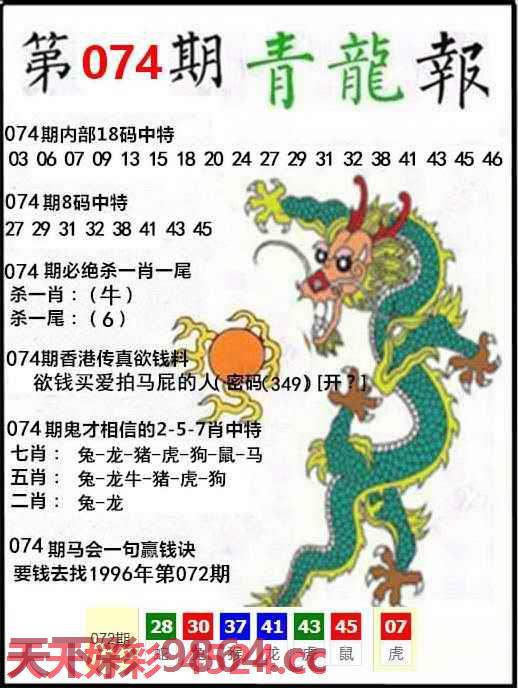 第074期青龍報
074期内部18码中特
03 06 07 09 13 15 18 20 24 27 29 31 32 38 41 43 45 46
074期8码中特
27 29 31 32 38 41 43 45
074期必绝杀一肖一尾
杀一肖：（牛）
杀一尾：（6）
074期香港传真欲钱料
欲钱买爱拍马屁的人(密码(349)[开?]
074期鬼才相信的2-5-7肖中特
七肖： 兔-龙-猪-虎-狗-鼠-马
五肖： 兔-龙牛-猪-虎-狗
二肖： 兔-龙
074期马会一句赢钱诀
要钱去找1996年第072期
072期 28 30 37 41 43 45 07
猴 龙 虎 鼠 虎
天天好彩
.cc